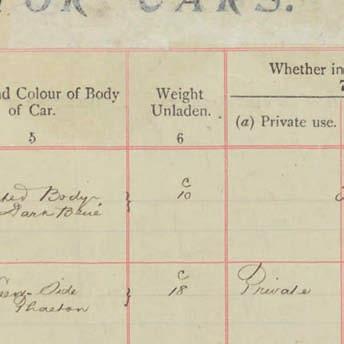 OR CARS.
nd Colour of Body
of Car.
5
Weight
Unladen.
6
Whether in
7
(a) Private use.
Body
Dark Blue
C
10
Side
Phaeton
C
18
Private